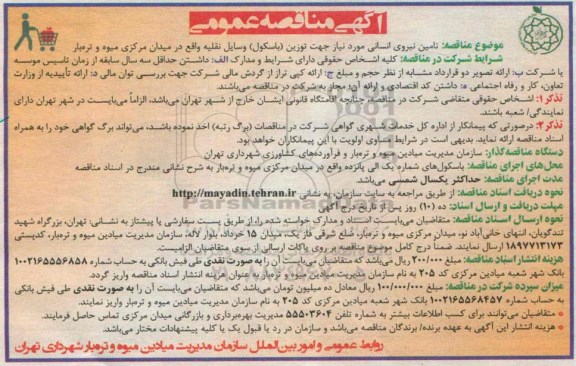 آگهی مناقصه عمومی
موضوع مناقصه: تامین نیروی انسانی مورد نیاز جهت توزین (باسکول) وسایل نقلیه واقع در میدان مرکزی میوه و تره‌بار
شرایط شرکت در مناقصه: کلیه اشخاص حقوقی دارای شرایط و مدارک الف: داشتن حداقل سه سال سابقه از زمان تاسیس موسسه
یا شرکت ب: ارائه تصویر دو قرارداد مشابه از نظر حجم و مبلغ ج: ارائه کپی تراز از گردش مالی شرکت جهت بررسی توان مالی د: ارائه تأییدیه از وزارت
تعاون، کار و رفاه اجتماعی ه: داشتن کد اقتصادی و ارائه آن، مجاز به شرکت در مناقصه می‌باشند.
تذکر۱: اشخاص حقوقی متقاضی شرکت در مناقصه چنانچه اقامتگاه قانونی ایشان خارج از شهر تهران می‌باشد، الزاماً می‌بایست در شهر تهران دارای
نمایندگی/ شعبه باشند.
تذکر۲: درصورتی که پیمانکار از اداره کل خدمات شهری گواهی شرکت در مناقصات (برگ رتبه) اخذ نموده باشند، می‌تواند برگ گواهی خود را به همراه
اسناد مناقصه ارائه نماید. بدیهی است در شرایط مساوی اولویت با این پیمانکاران خواهد بود.
دستگاه مناقصه‌گذار: سازمان مدیریت میادین میوه و تره‌بار و فرآورده‌های کشاورزی شهرداری تهران
محل‌های اجرای مناقصه: باسکول‌های شماره یک الی پانزده واقع در میدان مرکزی میوه و تره‌بار به شرح نشانی مندرج در اسناد مناقصه
مدت اجرای مناقصه: حداکثر یکسال شمسی می‌باشد.
نحوه دریافت اسناد مناقصه: از طریق مراجعه به سایت سازمان، به نشانی http://mayadin.tehran.ir
مهلت دریافت و ارسال اسناد: ده (۱۰) روز پس از تاریخ درج آگهی
نحوه ارسال اسناد مناقصه: متقاضیان می‌بایست اسناد و مدارک خواسته شده را، از طریق پست سفارشی یا پیشتاز به نشانی: تهران، بزرگراه شهید
تندگویان، انتهای خانی‌آباد نو، میدان مرکزی میوه و تره‌بار، ضلع شرقی فاز یک، میدان ۱۵ خرداد، بلوار لاله، سازمان مدیریت میادین میوه و تره‌بار، کدپستی
۱۸۹۷۷۱۳۱۷۳ ارسال نمایند. ضمناً درج کامل موضوع مناقصه بر روی پاکات ارسالی از سوی متقاضیان الزامیست.
هزینه انتشار اسناد مناقصه: مبلغ ۲۰۰/۰۰۰ ریال می‌باشد که متقاضیان می‌بایست آن را به صورت نقدی طی فیش بانکی به حساب شماره ۱۰۰۲۱۶۵۵۵۶۸۵۸
بانک شهر شعبه میادین مرکزی کد ۲۰۵ به نام سازمان مدیریت میادین میوه و تره‌بار به عنوان هزینه انتشار اسناد مناقصه واریز گردد.
میزان سپرده شرکت در مناقصه: مبلغ ۱۰۰/۰۰۰/۰۰۰ ریال معادل ده میلیون تومان می‌باشد که متقاضیان می‌بایست آن را به صورت نقدی طی فیش بانکی
به حساب شماره ۱۰۰۲۱۶۵۵۶۸۴۵۷ بانک شهر شعبه میادین مرکزی کد ۲۰۵ به نام سازمان مدیریت میادین میوه و تره‌بار واریز نمایند.
* متقاضیان می‌توانند برای کسب اطلاعات بیشتر به شماره تلفن ۵۵۵۰۳۶۰۴ مدیریت بهره‌برداری و بازرگانی میدان مرکزی تماس حاصل فرمایند.
* هزینه انتشار این آگهی به عهده برنده/ برندگان مناقصه می‌باشد و سازمان در رد یا قبول یک یا کلیه پیشنهادات مختار می‌باشد.
روابط عمومی و امور بین‌الملل سازمان مدیریت میادین میوه و تره‌بار شهرداری تهران